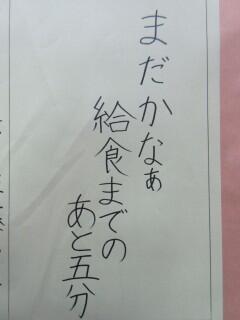 まだかなぁ
給食までの
あと五分